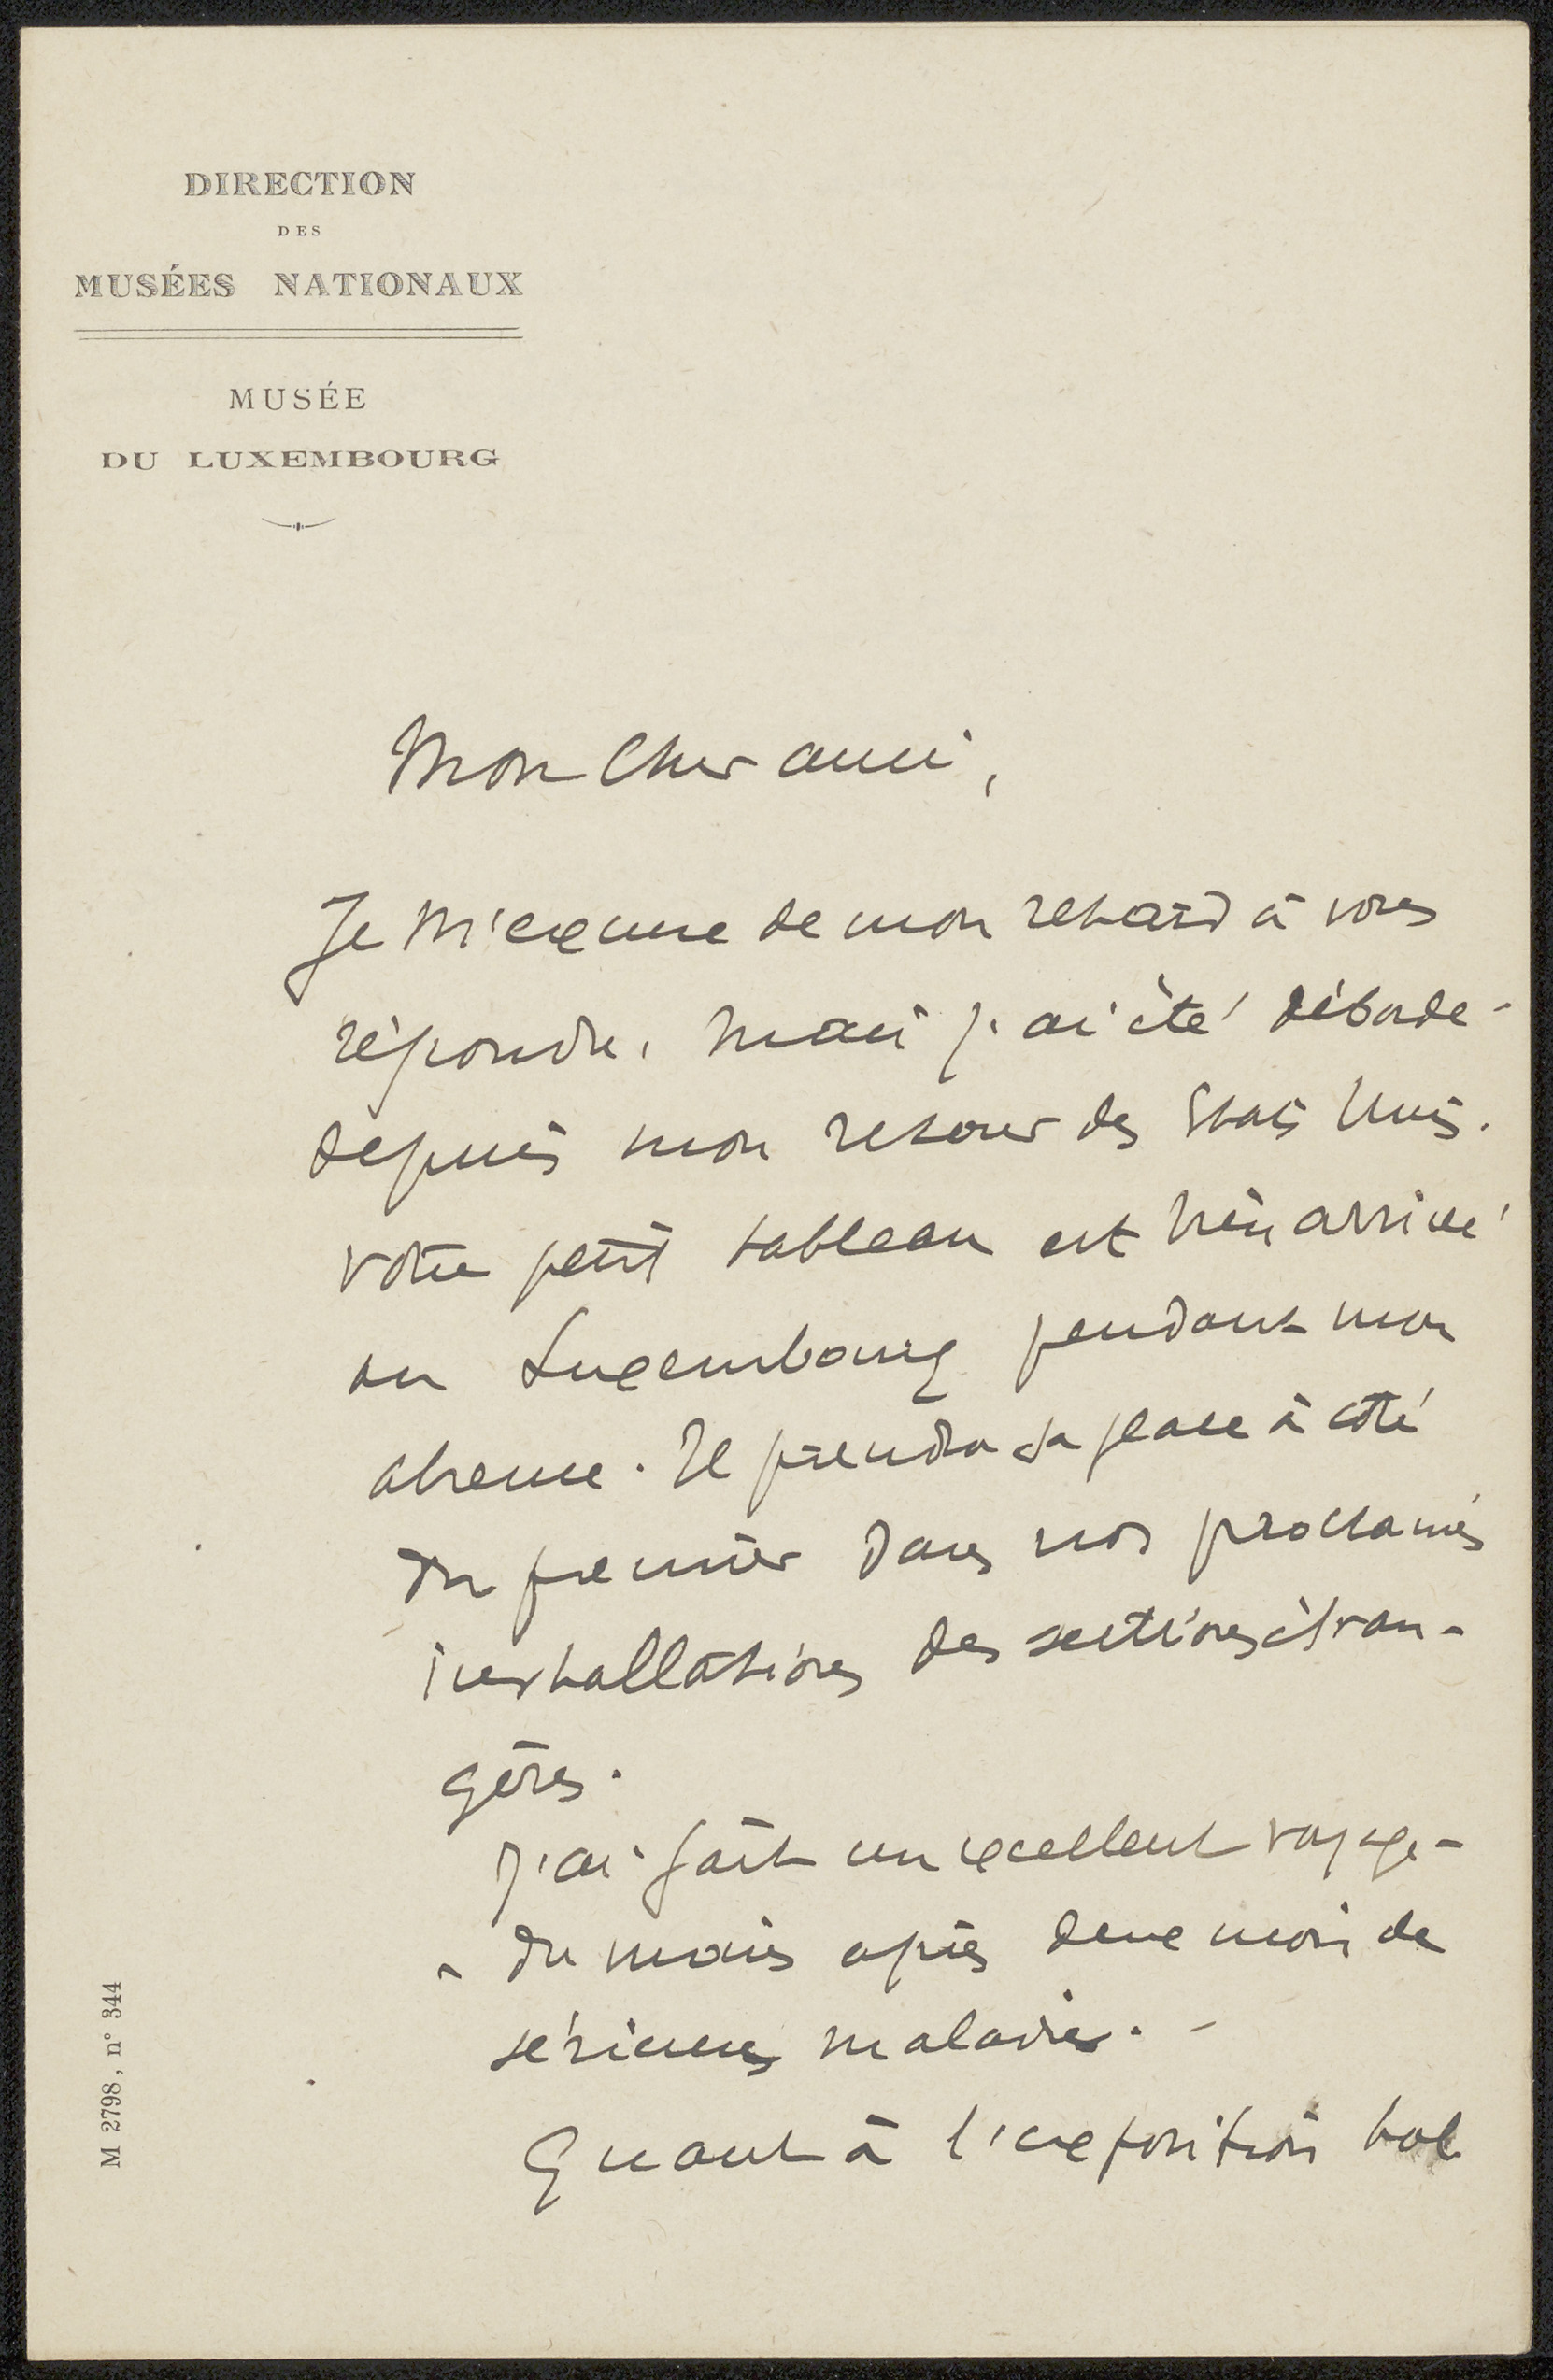 DIRECTION
DES
MUSÉES NATIONAUX
MUSÉE
DU LUXEMBOURG
Mon cher ami,
Je m'excuse de mon retard à vous
répondre, mais j'ai été débordé
depuis mon retour des Etats Unis.
votre petit tableau est bien arrivé
au Luxembourg pendant mon
absence. Il prendra sa place à côté
du premier dans nos prochaines
installations des sections étran-
gères.
J'ai fait un excellent voyage -
du moins après deux mois de
sérieuses maladies. -
Quant à l'exposition hol
M 2798, n° 344